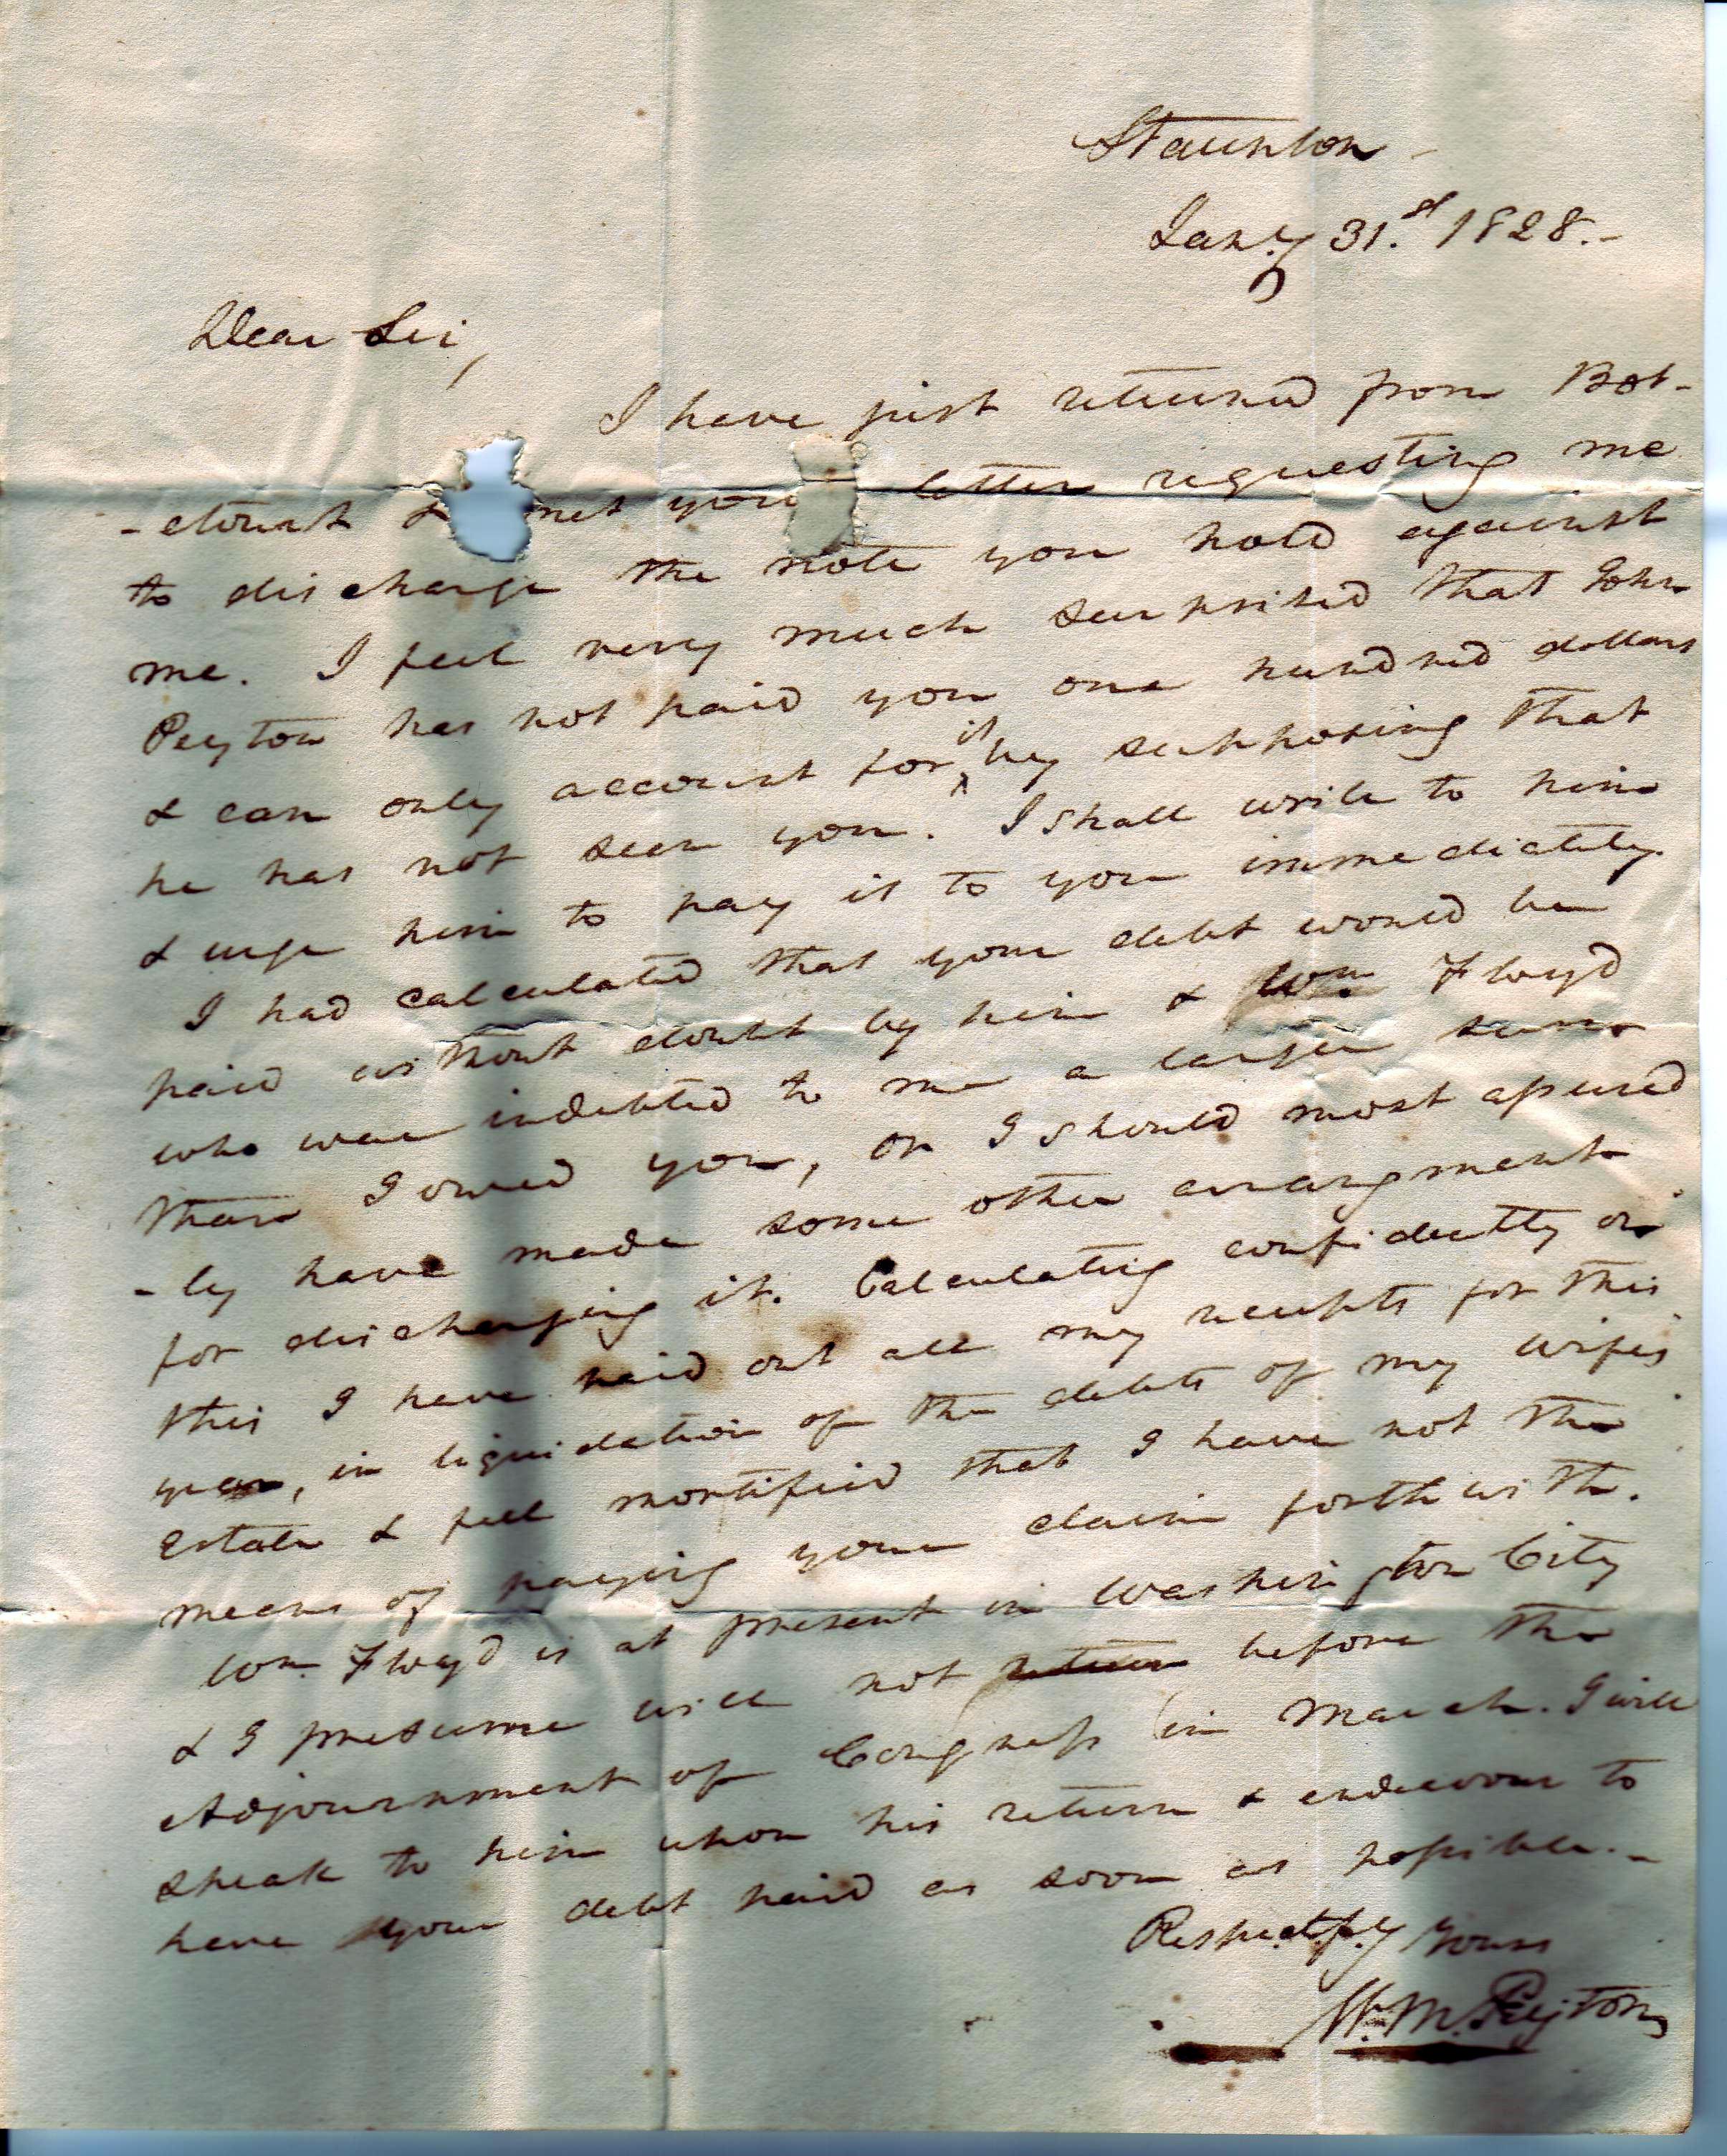 Staunton -
Jany. 31.st 1828.-
Dear Sir,
I have just returned from Bot-
-etourt & met your letter requesting me
to discharge the note you hold against
me. I feel very much surprised that John
Peyton has not paid you one hundred dollars
& can only account for it by supposing that
he has not seen you. I shall write to him
& urge him to pay it to you immediately.
I had calculated that your debt would be
paid without doubt by him & Wm. Floyd
who were indebted to me a larger sum
than I owed you, or I should most assured
-ly have made some other arrangment
for discharging it. Calculating confidently on
this I have paid out all my receipts for this
year, in liquidation of the debts of my wifes
Estate & feel mortified that I have not the
means of paying your claim forthwith.
Wm. Floyd is at present in Washington City
& I presume will not return before the
Adjournment of Congress in March. I will
speak to him upon his return & endeavour to
have your debt paid as soon as possible.-
Respectfly Yours
Wm. M. Peyton